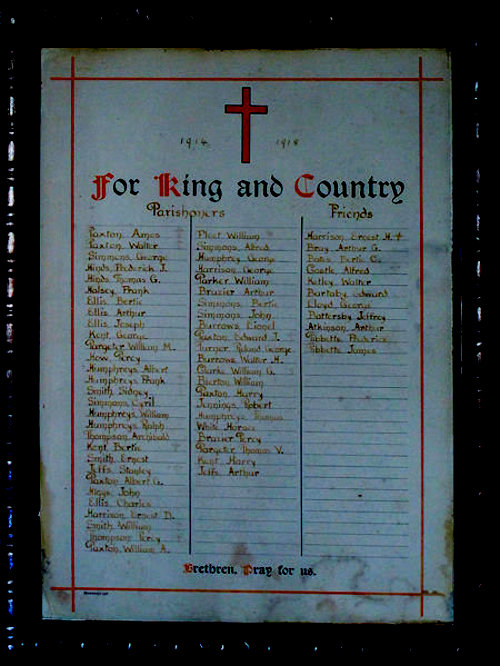 1914 1918
For King and Country
Parishoners
Paxton Amos
Paxton Walter
Simmons George
Hinds Frederick J.
Hinds Thomas G.
Halsey Frank
Ellis Bertie
Ellis Arthur
Ellis Joseph
Kent George
Pargeter William M.
How Percy
Humphreys Albert
Humphreys Frank
Smith Sidney
Simmons Cyril
Humphreys William
Humphreys Ralph
Thompson Archibald
Kent Bertie
Smith Ernest
Jeffs Stanley
Paxton Albert G.
Higgs John
Ellis Charles
Harrison Ernest D.
Smith William
Thompson Percy
Paxton William A.
William
Simmons Alfred
Humphrey George
Harrison George
Parker William
Brazier Arthur
Simmons Bertie
Simmons John
Burrows Lionel
Paxton Edward J.
Turner Roland George
Burrows Walter H.
Clarke William G.
Burton William
Paxton Harry
Jennings Robert
Humphreys Thomas
Horace
Brazier Percy
Pargeter Thomas V.
Kent Harry
Jeffs Arthur
Friends
Harrison Ernest H. +
Bray Arthur G.
Bates Bertie C.
Goatle Alfred
Walter
Burnaby Edward
Lloyd George
Battersby Jeffrey
Atkinson Arthur
Tibbetts Frederick
Tibbetts James
Brethren, Pray for us.